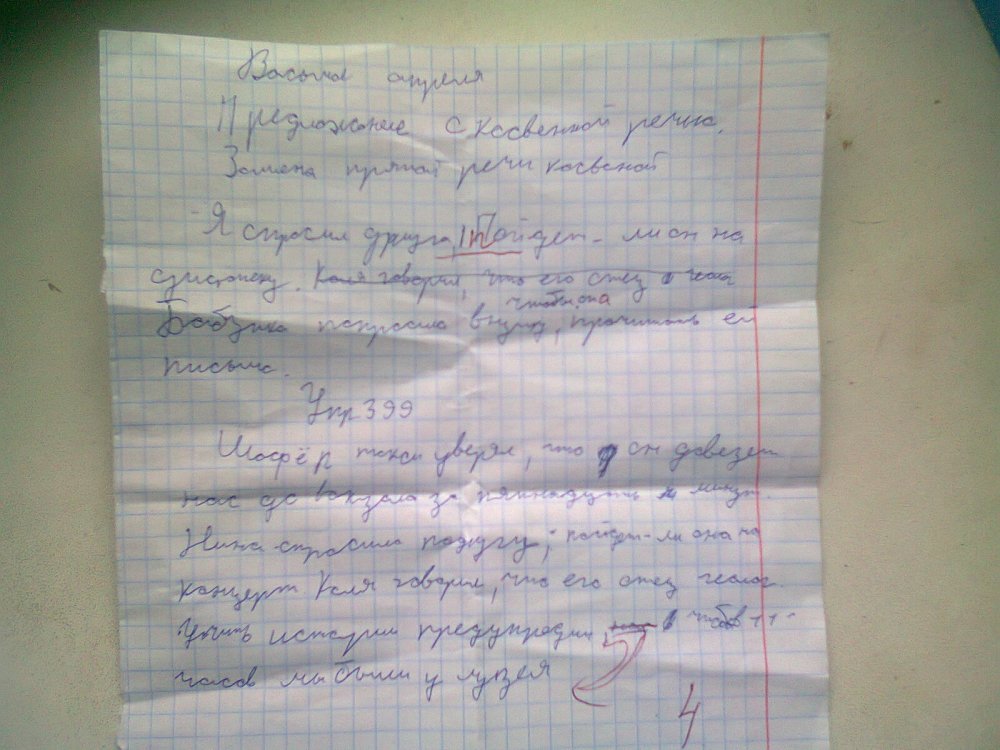 Восьмое апреля
Предложение с косвенной речью.
Замена прямой речи косвеной
Я спросил друга, Пойдет-ли он на
дискотеку. Коля говорил, что его отец геолог
чтобы она
Бабушка попросила внучку, прочитать ей
письмо.
Упр 399
Шофёр такси уверял, что он довезет
нас до вокзала за пятнадцать минут.
Нина спросила подругу; пойдет-ли она на
концерт Коля говорил, что его отец геолог.
Учить истории предупредил, в чтоб 11
часов мы были у музея
4